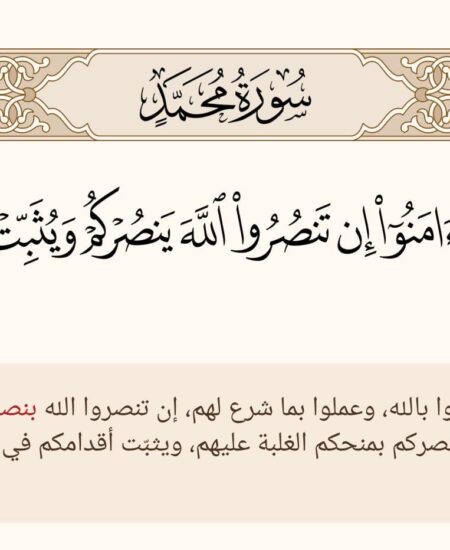 سُورَةُ مُحَمَّدٍ
ءَامَنُوٓا۟ إِن تَنصُرُوا۟ ٱللَّهَ يَنصُرْكُمْ وَيُثَبِّتْ
وا بالله، وعملوا بما شرع لهم، إن تنصروا الله بنص
نصركم بمنحكم الغلبة عليهم، ويثبّت أقدامكم في